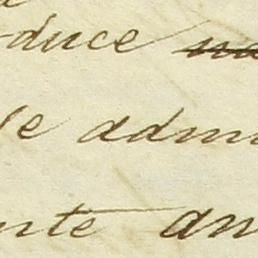 duce
le admi
nte an